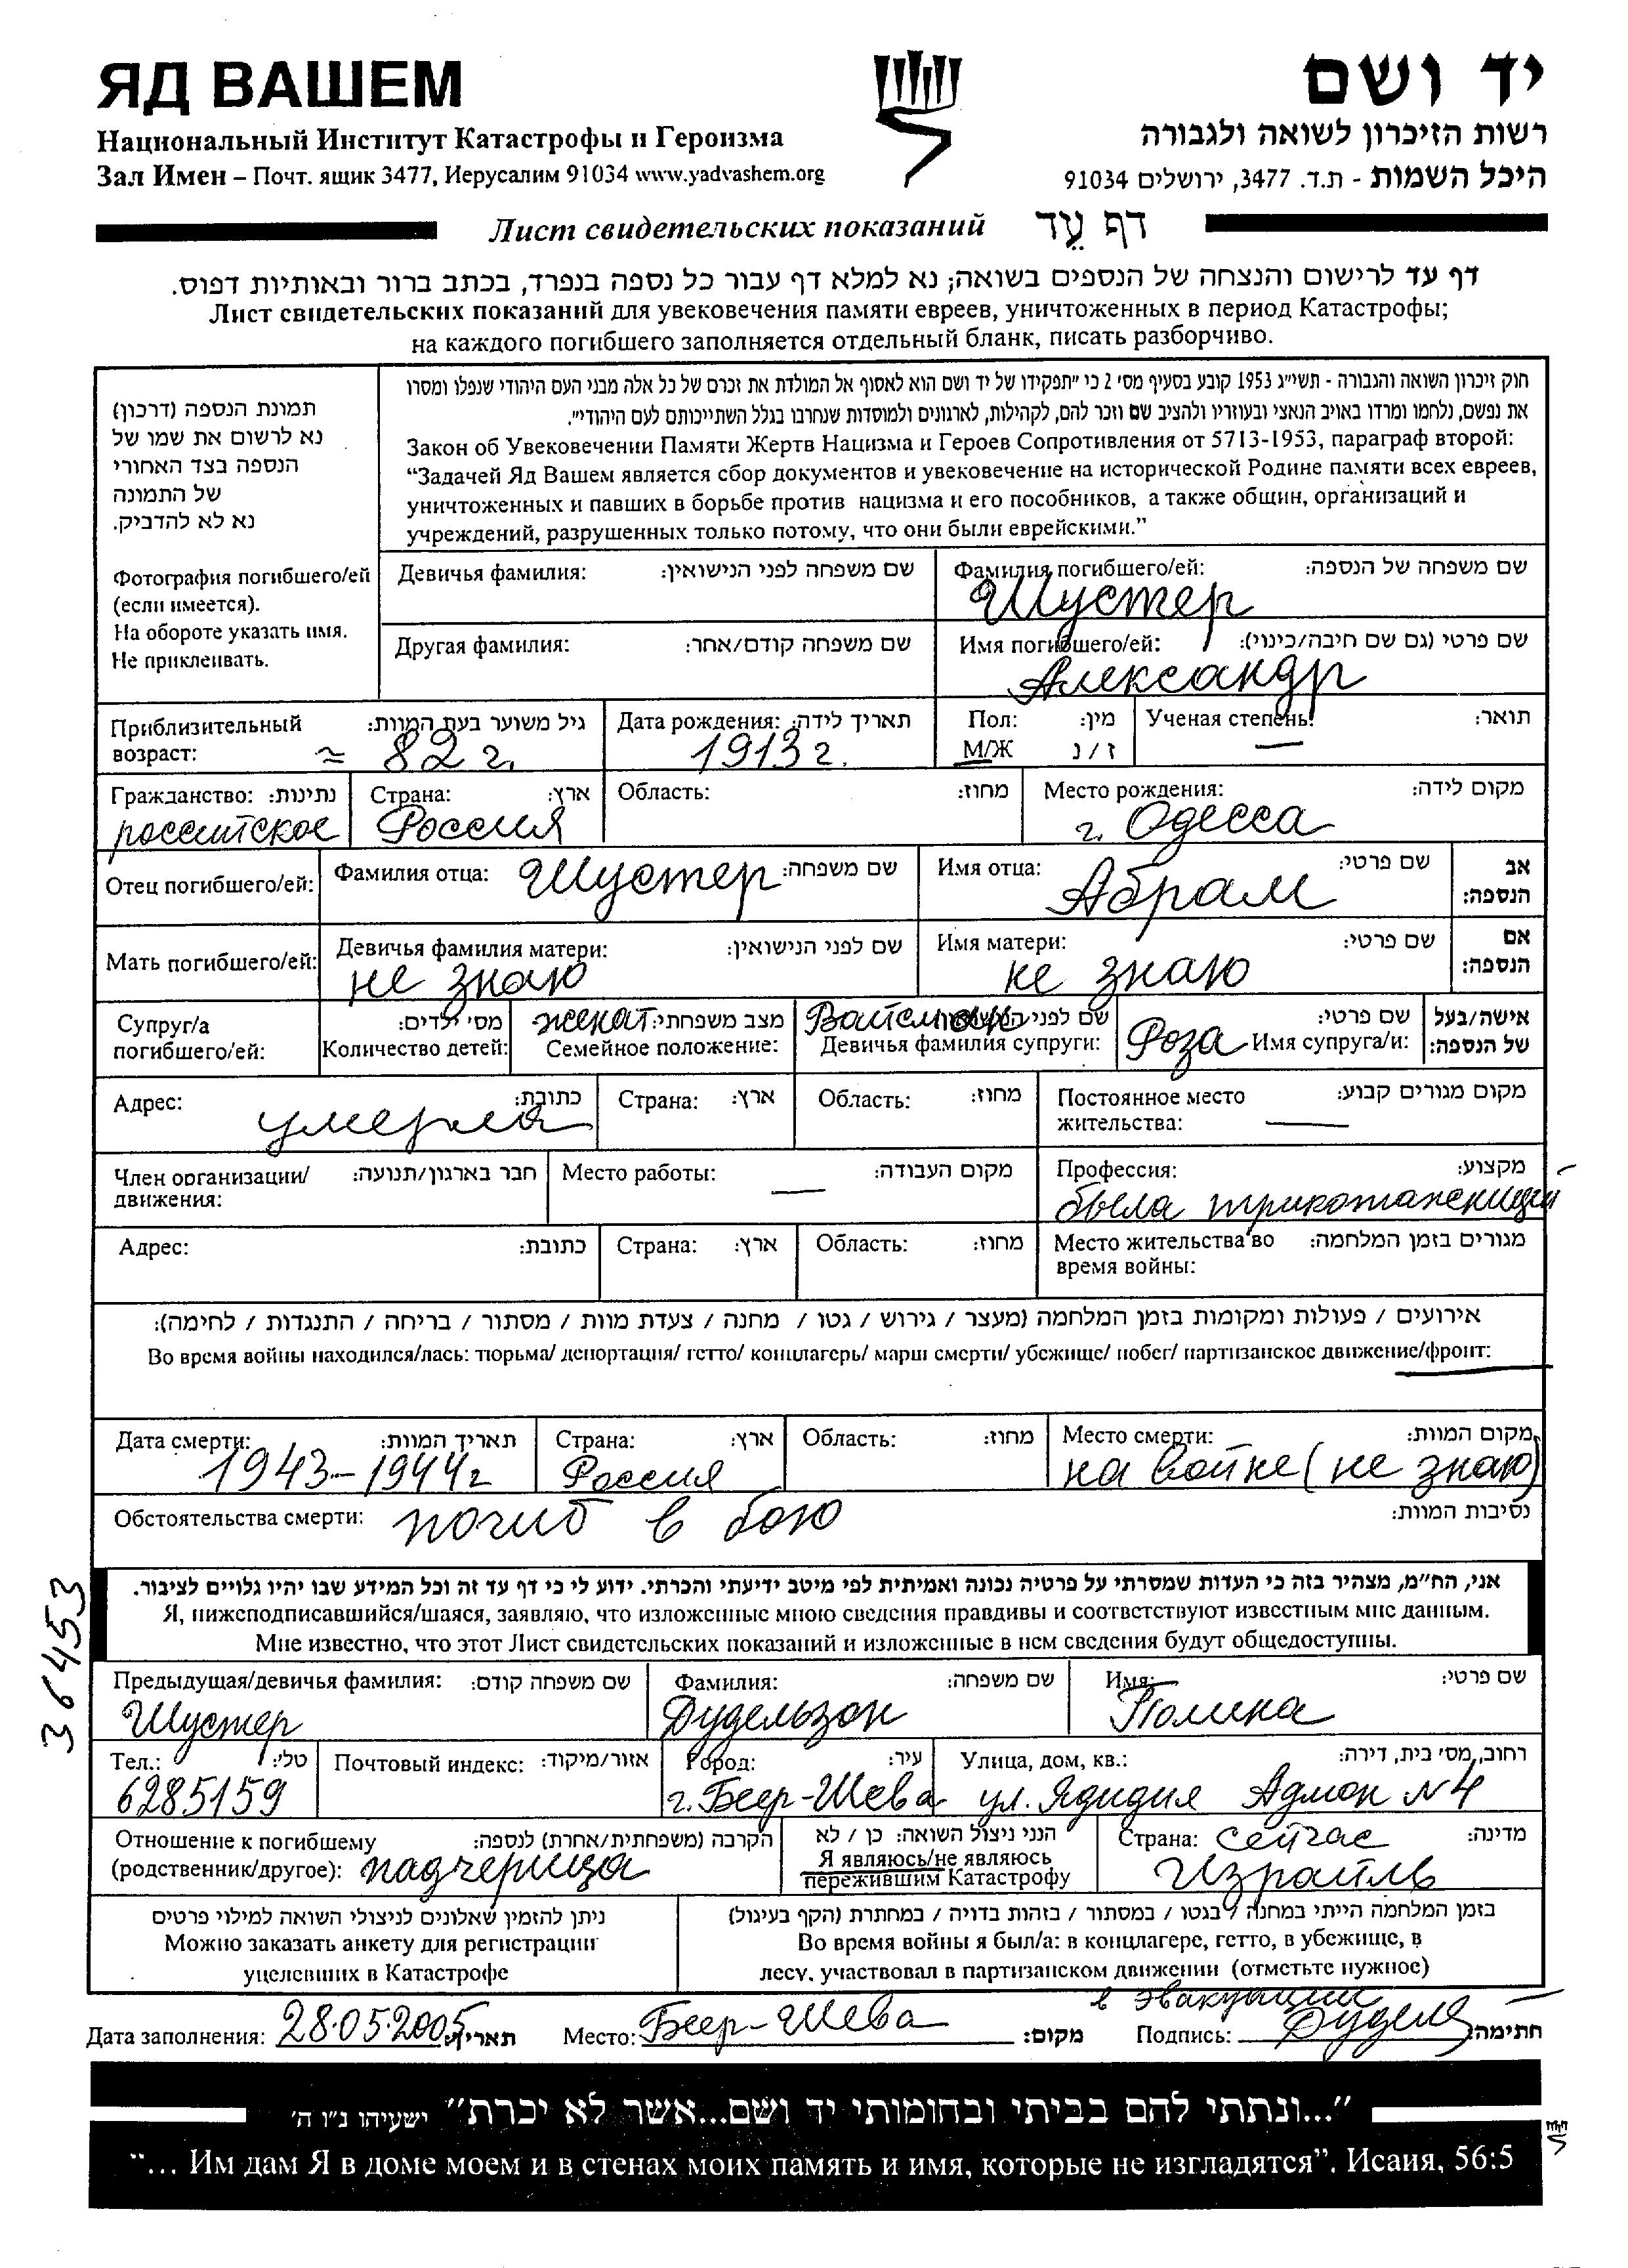 ЯД ВАШЕМ
יד ושם
Национальный Институт Катастрофы и Героизма
רשות הזיכרון לשואה ולגבורה
Зал Имен – Почт. ящик 3477, Иерусалим 91034 www.yadvashem.org
היכל השמות - ת.ד. 3477, ירושלים 91034
Лист свидетельских показаний דף עֵד
דף עד לרישום והנצחה של הנספים בשואה; נא למלא דף עבור כל נספה בנפרד, בכתב ברור ובאותיות דפוס.
Лист свидетельских показаний для увековечения памяти евреев, уничтоженных в период Катастрофы;
на каждого погибшего заполняется отдельный бланк, писать разборчиво.
תמונת הנספה (דרכון)
נא לרשום את שמו של
הנספה בצד האחורי
של התמונה
נא לא להדביק.
Фотография погибшего/ей
(если имеется).
На обороте указать имя.
Не приклеивать.
חוק זיכרון השואה והגבורה - תשי"ג 1953 קובע בסעיף מס' 2 כי "תפקידו של יד ושם הוא לאסוף אל המולדת את זכרם של כל אלה מבני העם היהודי שנפלו ומסרו
את נפשם, נלחמו ומרדו באויב הנאצי ובעוזריו ולהציב שם וזכר להם, לקהילות, לארגונים ולמוסדות שנחרבו בגלל השתייכותם לעם היהודי".
Закон об Увековечении Памяти Жертв Нацизма и Героев Сопротивления от 5713-1953, параграф второй:
“Задачей Яд Вашем является сбор документов и увековечение на исторической Родине памяти всех евреев,
уничтоженных и павших в борьбе против нацизма и его пособников, а также общин, организаций и
учреждений, разрушенных только потому, что они были еврейскими.”
Девичья фамилия: שם משפחה לפני הנישואין:
Фамилия погибшего/ей: שם משפחה של הנספה:
Шустер
Другая фамилия: שם משפחה קודם/אחר:
Имя погибшего/ей: שם פרטי (גם שם חיבה/כינוי):
Александр
Приблизительный возраст: גיל משוער בעת המוות:
≈ 82 г.
Дата рождения: תאריך לידה:
1913 г.
Пол: מין:
М/Ж ז / נ
Ученая степень: תואר:
—
Гражданство: נתינות:
российское
Страна: ארץ:
Россия
Область: מחוז:
Место рождения: מקום לידה:
г. Одесса
Отец погибшего/ей:
Фамилия отца: Шустер שם משפחה:
Имя отца: Абрам שם פרטי:
אב הנספה:
Мать погибшего/ей:
Девичья фамилия матери: שם לפני הנישואין:
не знаю
Имя матери: שם פרטי:
не знаю
אם הנספה:
Супруг/а погибшего/ей:
מס' ילדים:
Количество детей:
женат מצב משפחתי:
Семейное положение:
Вайсман שם לפני הנישואין:
Девичья фамилия супруги:
Роза Имя супруга/и: שם פרטי:
אישה/בעל של הנספה:
Адрес: כתובת:
умерла
Страна: ארץ:
Область: מחוז:
Постоянное место жительства: מקום מגורים קבוע:
—
Член организации/ движения: חבר בארגון/תנועה:
Место работы: מקום העבודה:
—
Профессия: מקצוע:
была трикотажницей
Адрес: כתובת:
Страна: ארץ:
Область: מחוז:
Место жительства во время войны: מגורים בזמן המלחמה:
אירועים / פעולות ומקומות בזמן המלחמה (מעצר / גירוש / גטו / מחנה / צעדת מוות / מסתור / בריחה / התנגדות / לחימה):
Во время войны находился/лась: тюрьма/ депортация/ гетто/ концлагерь/ марш смерти/ убежище/ побег/ партизанское движение/фронт:
Дата смерти: תאריך המוות:
1943–1944г
Страна: ארץ:
Россия
Область: מחוז:
Место смерти: מקום המוות:
на войне (не знаю)
Обстоятельства смерти: погиб в бою נסיבות המוות:
אני, הח"מ, מצהיר בזה כי העדות שמסרתי על פרטיה נכונה ואמיתית לפי מיטב ידיעתי והכרתי. ידוע לי כי דף עד זה וכל המידע שבו יהיו גלויים לציבור.
Я, нижеподписавшийся/шаяся, заявляю, что изложенные мною сведения правдивы и соответствуют известным мне данным.
Мне известно, что этот Лист свидетельских показаний и изложенные в нем сведения будут общедоступны.
36453
Предыдущая/девичья фамилия: שם משפחה קודם:
Шустер
Фамилия: שם משפחה:
Дудельзон
Имя: שם פרטי:
Полина
Тел.: טל':
6285159
Почтовый индекс: אזור/מיקוד:
Город: עיר:
г. Беер-Шева
Улица, дом, кв.: רחוב, מס' בית, דירה:
ул. Ядидия Адмон №4
Отношение к погибшему הקרבה (משפחתית/אחרת) לנספה:
(родственник/другое): падчерица
הנני ניצול השואה: כן / לא
Я являюсь/не являюсь
пережившим Катастрофу
Страна: сейчас מדינה:
Израиль
ניתן להזמין שאלונים לניצולי השואה למילוי פרטים
Можно заказать анкету для регистрации
уцелевших в Катастрофе
בזמן המלחמה הייתי במחנה / בגטו / במסתור / בזהות בדויה / במחתרת (הקף בעיגול)
Во время войны я был/а: в концлагере, гетто, в убежище, в
лесу, участвовал в партизанском движении (отметьте нужное)
в эвакуации
Дата заполнения: 28.05.2005 תאריך: Место: Беер-Шева מקום: Подпись: Дудель חתימה:
"...ונתתי להם בביתי ובחומותי יד ושם...אשר לא יכרת" ישעיהו נ"ו ה'
“... Им дам Я в доме моем и в стенах моих память и имя, которые не изгладятся”. Исаия, 56:5